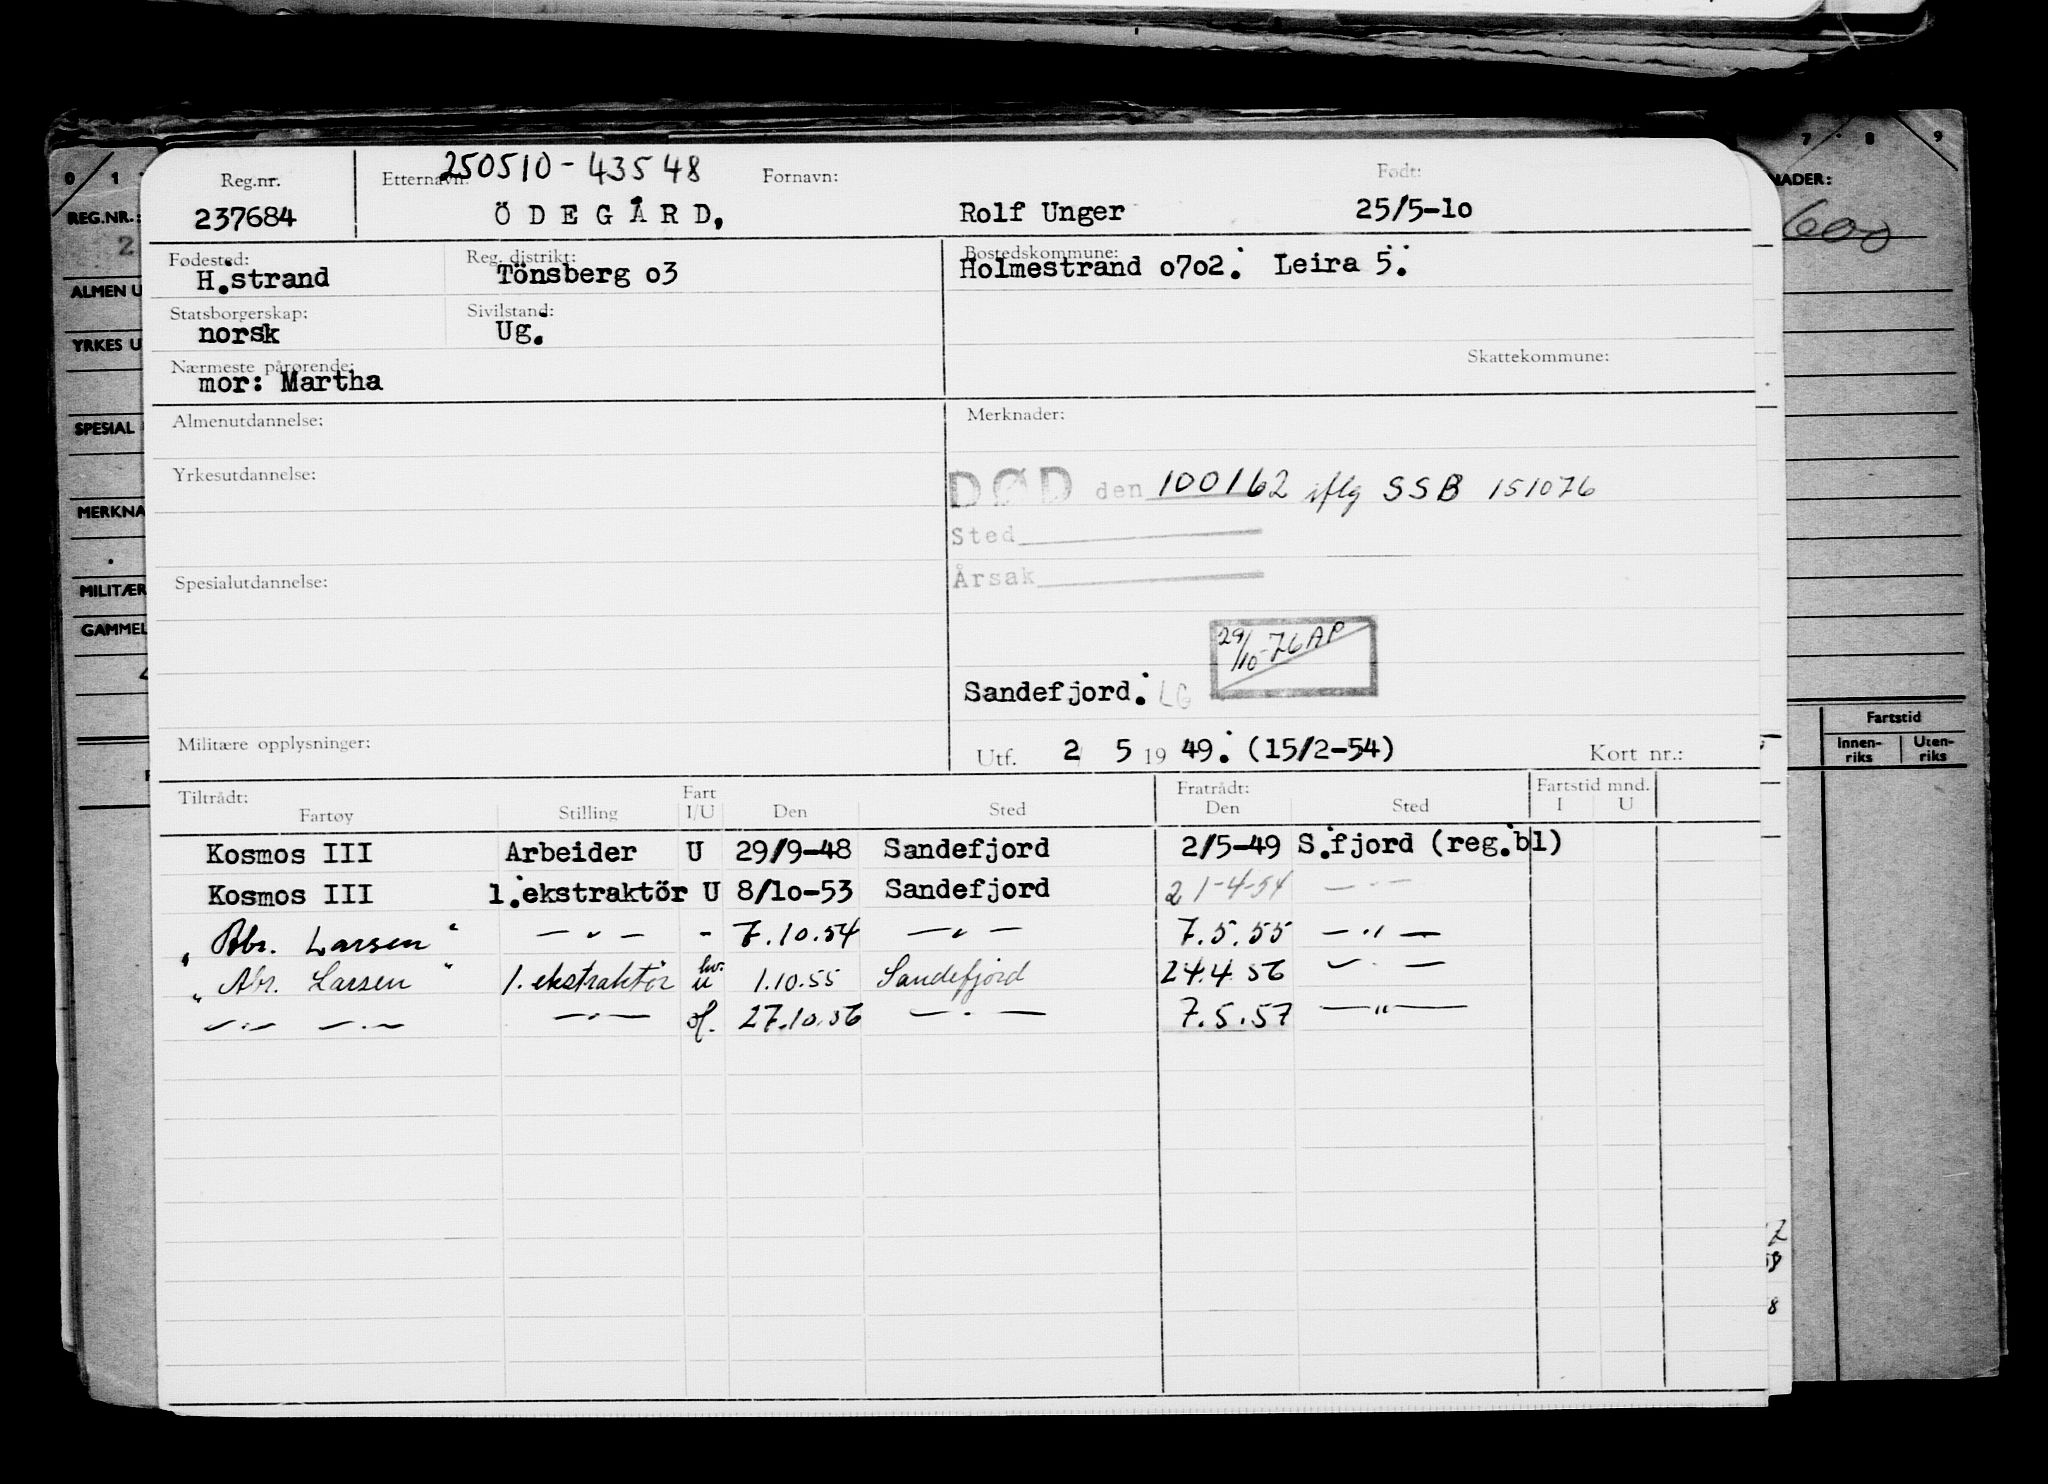 7 8 9
0 1
NADER:
REG.NR.:
600
2
ALMEN U
YRKES U
SPESIAL
MERKNA
MILITÆR
GAMMEL
Fartstid
Innen-riks Uten-riks
250510-43548
Reg.nr. Etternavn: Fornavn: Født:
237684 ÖDEGÅRD, Rolf Unger 25/5-10
Fødested: Reg. distrikt: Bostedskommune:
H.strand Tönsberg 03 Holmestrand 0702. Leira 5.
Statsborgerskap: Sivilstand:
norsk Ug.
Nærmeste pårørende: Skattekommune:
mor: Martha
Almenutdannelse: Merknader:
Yrkesutdannelse:
DØD den 100162 iflg SSB 151076
Sted
Årsak
Spesialutdannelse:
29/10-76 AP
Sandefjord. LG
Militære opplysninger: Utf. 2 5 19 49. (15/2-54) Kort nr.:
Tiltrådt: Fart Fratrådt: Fartstid mnd.
Fartøy Stilling I/U Den Sted Den Sted I U
Kosmos III Arbeider U 29/9-48 Sandefjord 2/5-49 S.fjord (reg.bl)
Kosmos III 1.ekstraktör U 8/10-53 Sandefjord 21-4-54 — " —
" Abr. Larsen " — " — - 7.10.54 — " — 7.5.55 — " —
" Abr. Larsen " 1. ekstraktör hv. u 1.10.55 Sandefjord 24.4.56 — " —
— " — — " — — " — 27.10.56 — " — 7.5.57 — " —